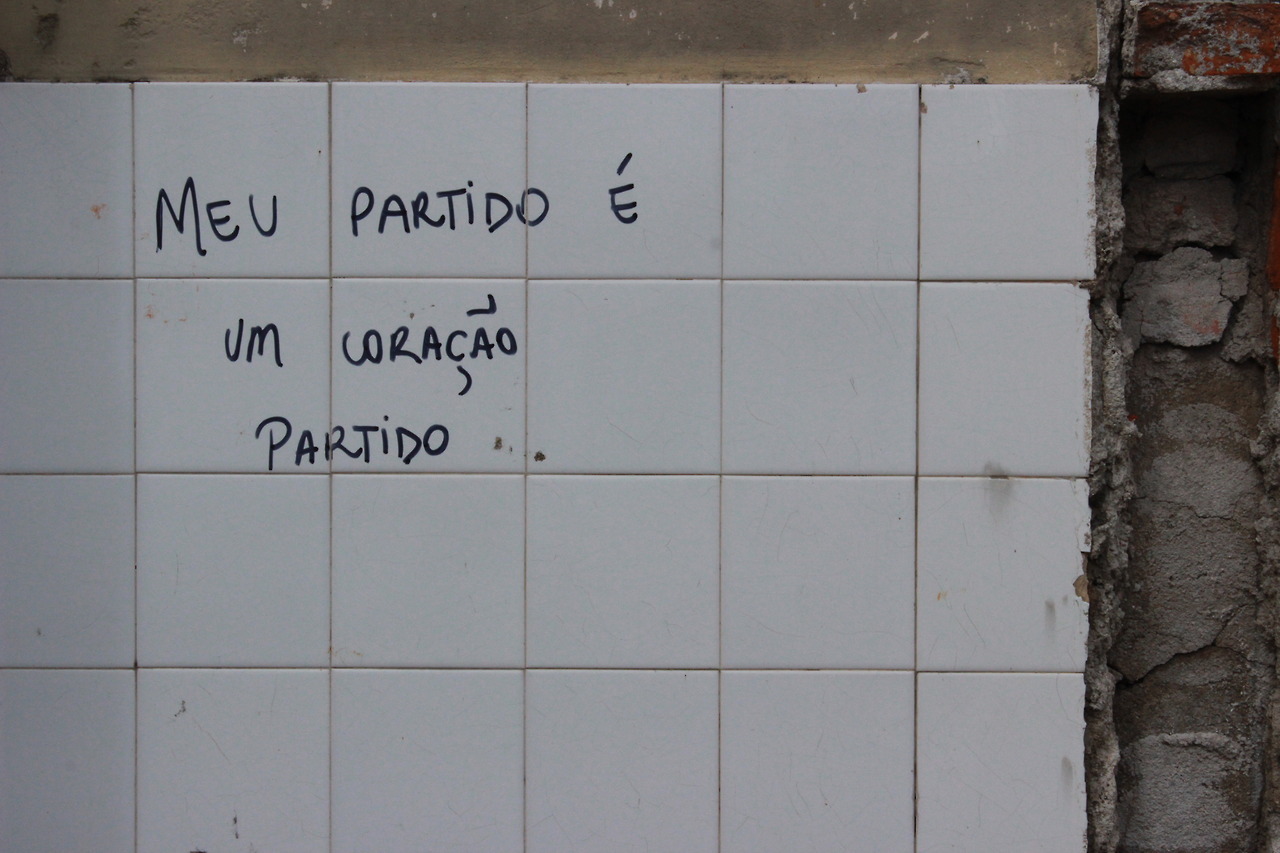 MEU PARTIDO É
UM CORAÇÃO
PARTIDO